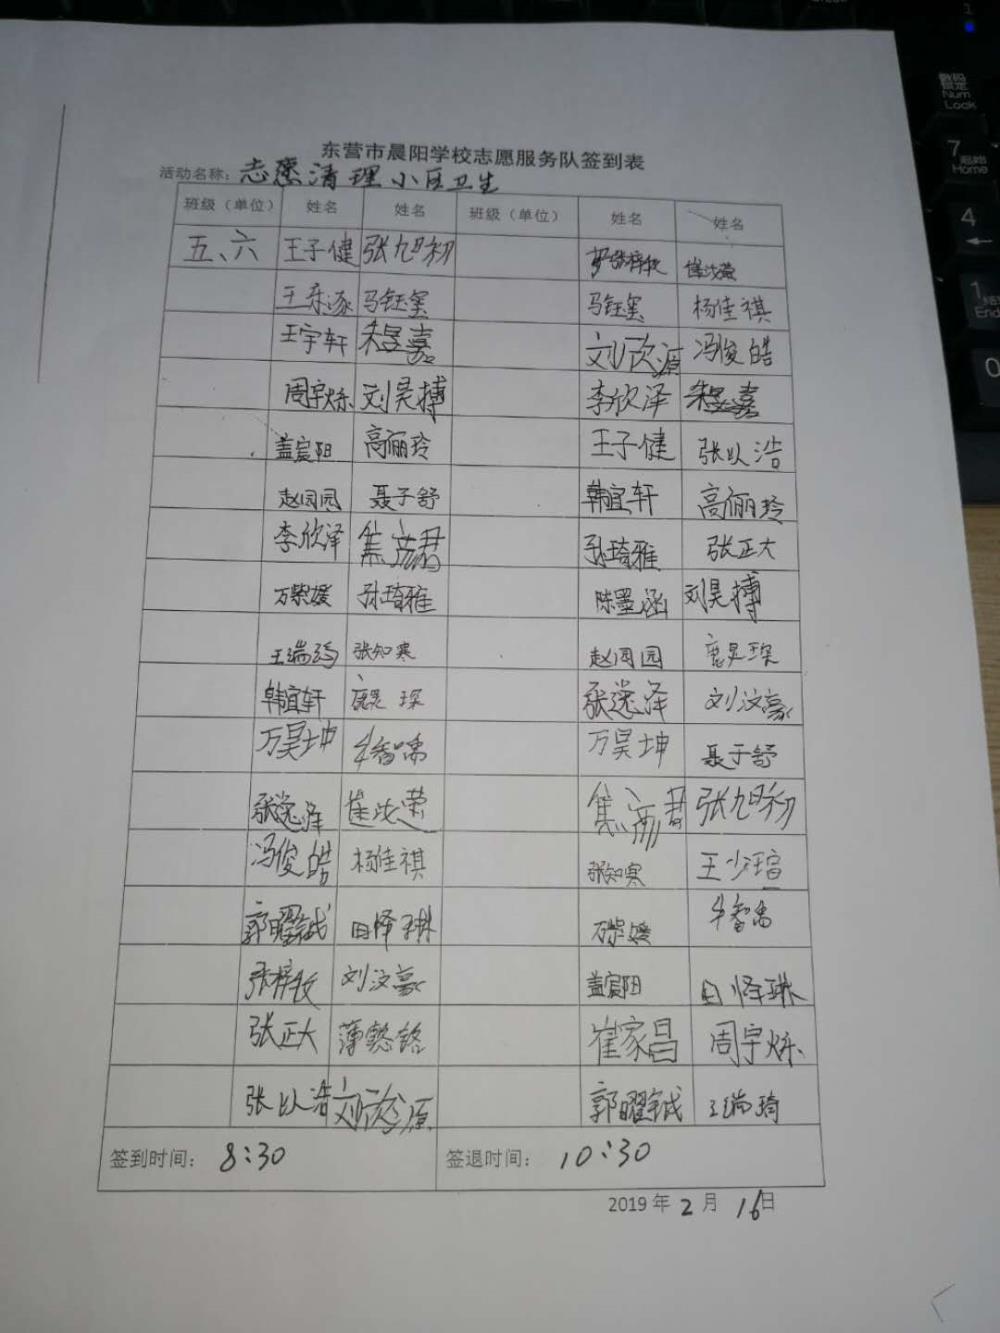 东营市晨阳学校志愿服务队签到表
活动名称：志愿清理小区卫生
班级（单位） 姓名 姓名 班级（单位） 姓名 姓名
五、六 王子健 张旭初
王东涿 马钰玺 马钰玺 杨佳祺
王宇轩 朱昱嘉 刘欣源 冯俊皓
周宇烁 刘昊搏 李欣泽 朱昱嘉
盖宸阳 高俪玲 王子健 张以浩
赵园园 聂子舒 韩宜轩 高俪玲
李欣泽 焦彦君 孙琦雅 张正大
万紫媛 孙琦雅 陈墨涵 刘昊搏
王瑞琦 张知寒 赵园园
韩宜轩 张逸泽 刘汶豪
万昊坤 牛智 万昊坤 聂子舒
张逸泽 崔汝蕊 焦彦君 张旭初
冯俊皓 杨佳祺 张知寒 王少瑄
郭曜铖 田怿琳 万紫媛 牛智
张梓牧 刘汶豪 盖宸阳 田怿琳
张正大 薄懿铭 崔家昌 周宇烁
张以浩 刘欣源 郭曜铖 王瑞琦
签到时间：8:30 签退时间：10:30
2019年2月16日